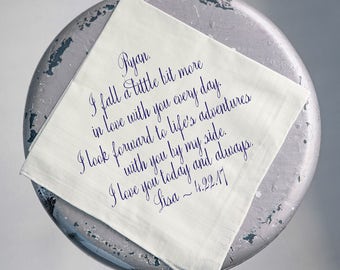 Ryan,
I fall a little bit more
in love with you every day.
I look forward to life's adventures
with you by my side.
I love you today and always.
Lisa ~ 4.22.17